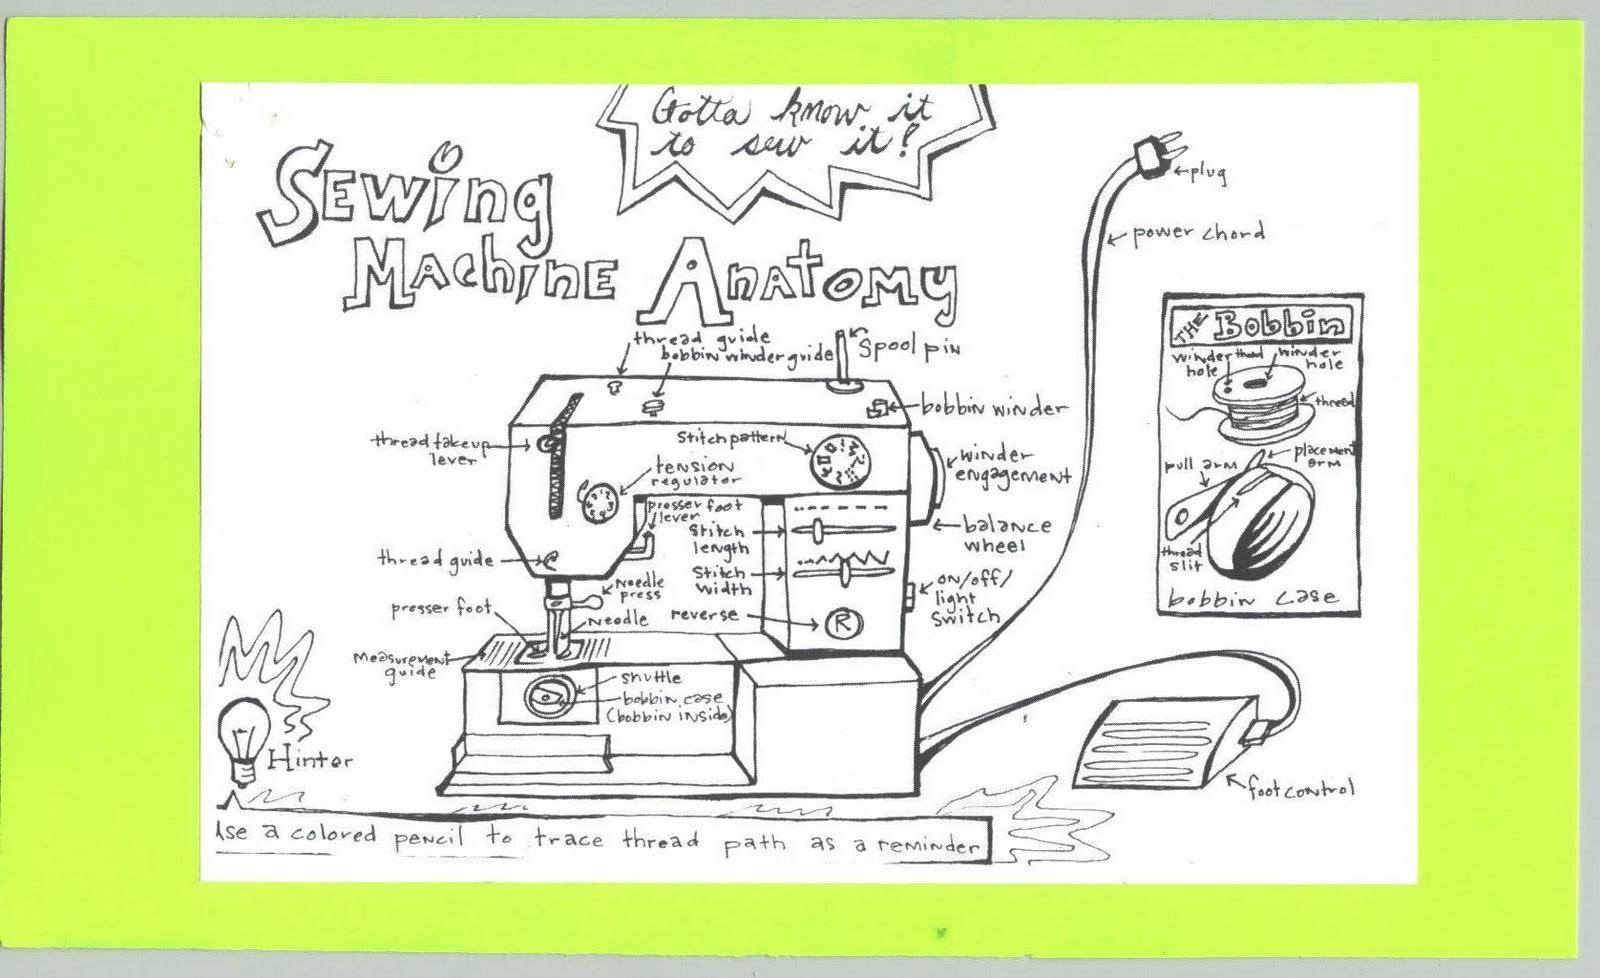 Gotta know it
to sew it!
SEWing
MACHINE ANATOMY
plug
power chord
thread guide
bobbin winder guide
Spool pin
bobbin winder
thread takeup
lever
Stitch pattern
tension
regulator
winder
engagement
presser foot
lever
Stitch
length
balance
wheel
thread guide
Stitch
width
Needle
press
on/off/
light
Switch
presser foot
Needle
reverse
R
Measurement
guide
shuttle
bobbin case
(bobbin inside)
THE Bobbin
winder thread
hole
winder
hole
thread
pull arm
placement
arm
thread
slit
bobbin case
foot control
Hinter
Use a colored pencil to trace thread path as a reminder